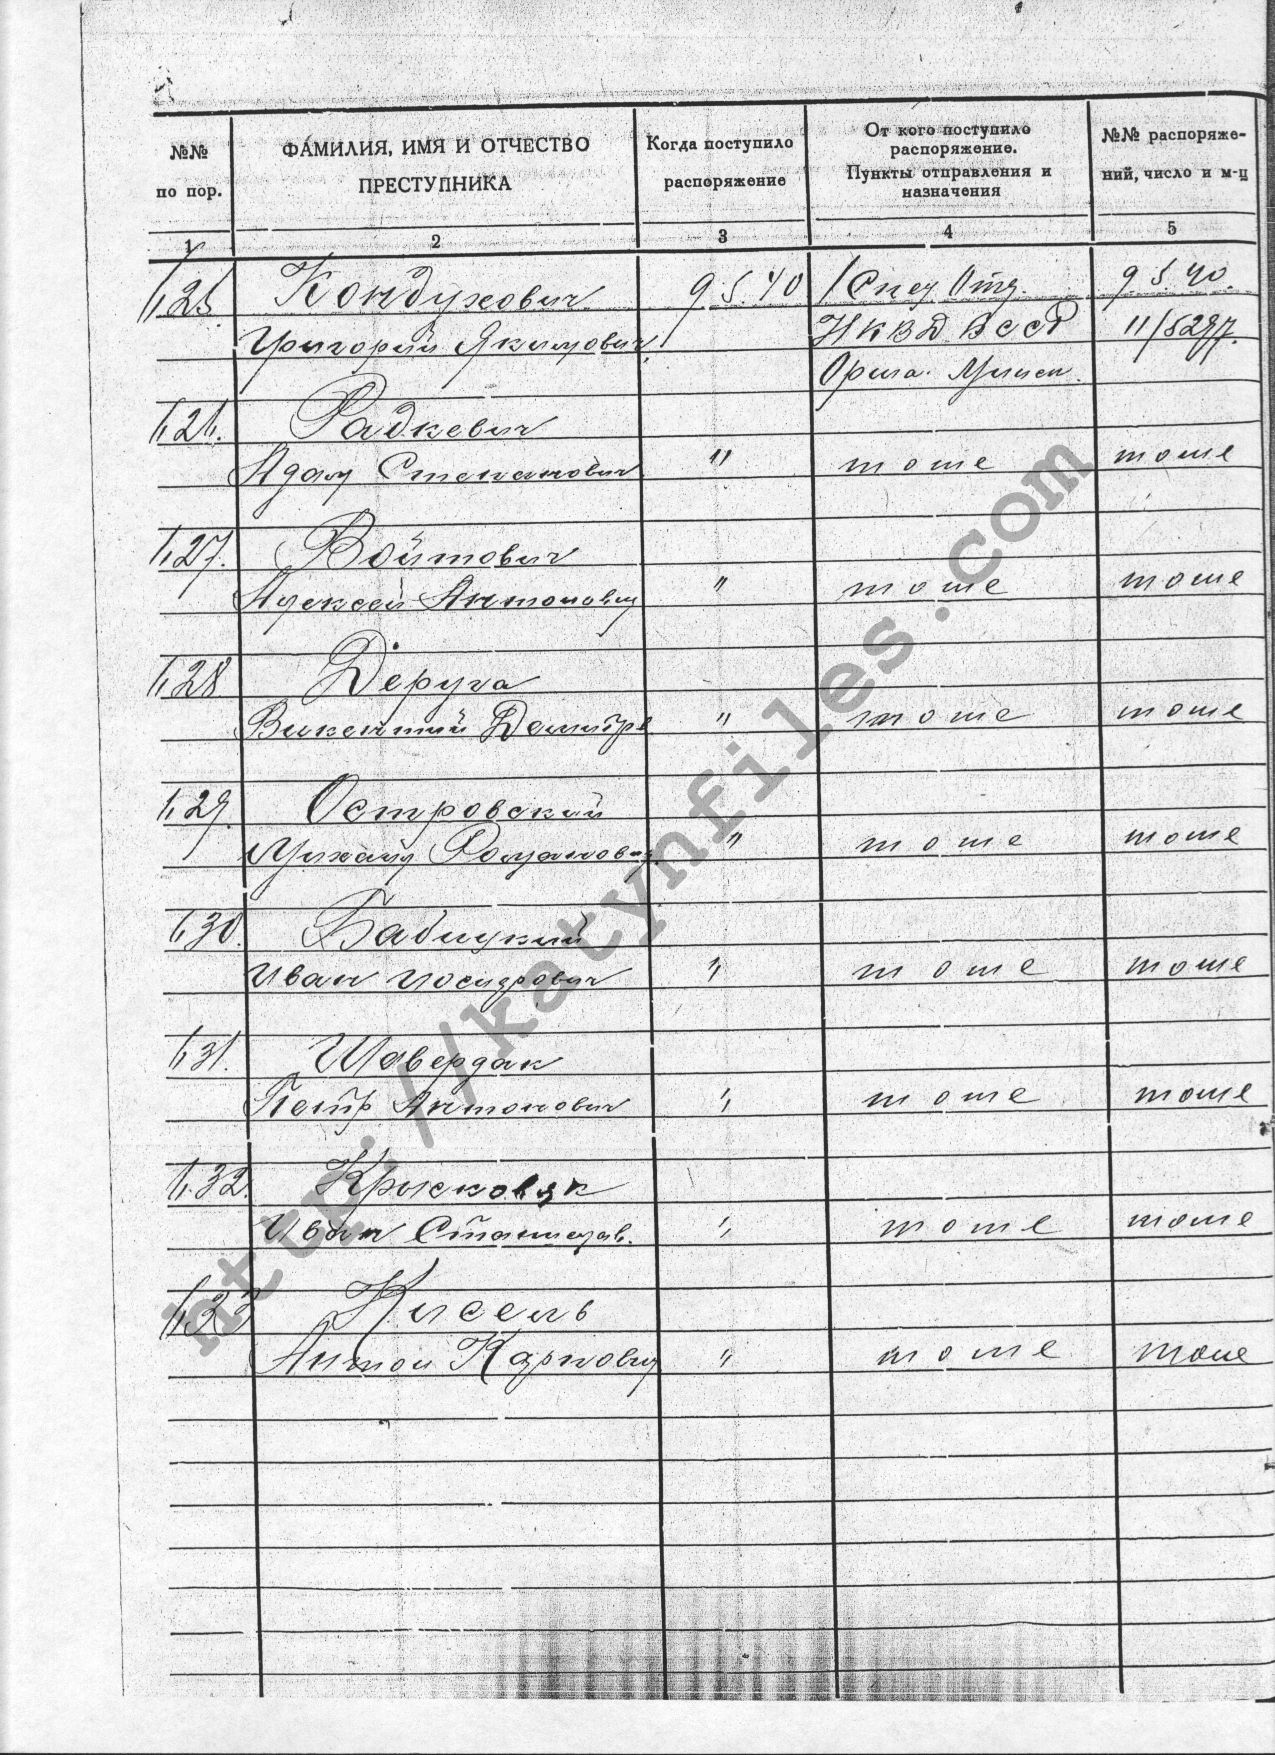 №№ по пор.
ФАМИЛИЯ, ИМЯ И ОТЧЕСТВО ПРЕСТУПНИКА
Когда поступило распоряжение
От кого поступило распоряжение. Пункты отправления и назначения
№№ распоряжений, число и м-ц
1 2 3 4 5
125. Кондухович 9 5. 40 1 Спец Отд. 9 5. 40.
Григорий Якимович НКВД БССР 11/5297.
Орша. Минск.
126. Радкевич
Адам Степанович " тоше тоше
127. Войтович
Алексей Антонович " тоше тоше
128 Деруга
Викентий Дмитр " тоше тоше
129. Островский
Михаил Романович " тоше тоше
130. Бабицкий
Иван Иосифович " тоше тоше
131. Шавердак
Петр Антонович " тоше тоше
132. Крысковяк
Иван Станислав. " тоше тоше
133 Кисель
Антон Карпович " тоше тоше
http://katynfiles.com